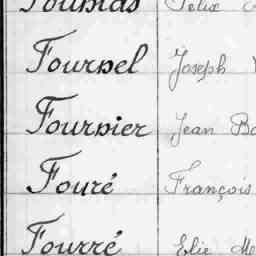 Fournel Joseph
Fournier Jean
Fouré François
Fourré Elie